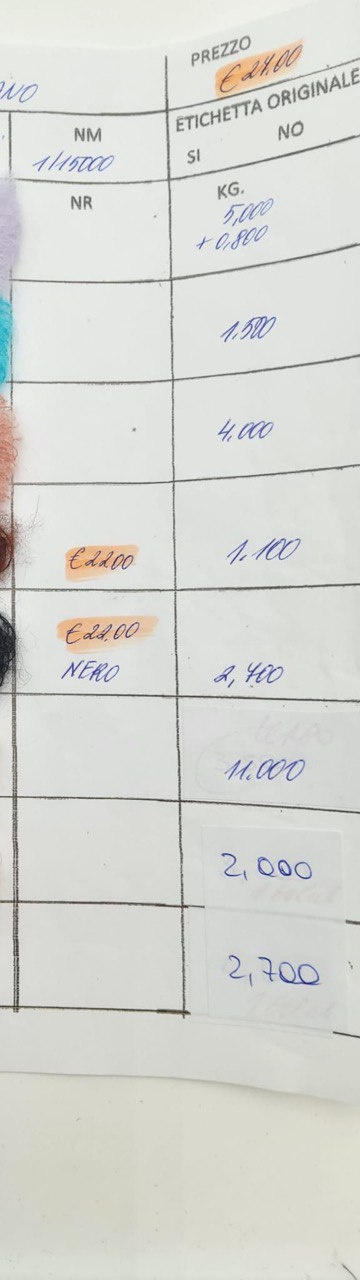 PREZZO
€ 24,00
NO
ETICHETTA ORIGINALE
NM
SI NO
1/15000
NR
KG.
5,000
+ 0,800
1.500
4.000
€ 22,00
1.100
€ 22,00
NERO
2,400
11.000
2,000
2,700